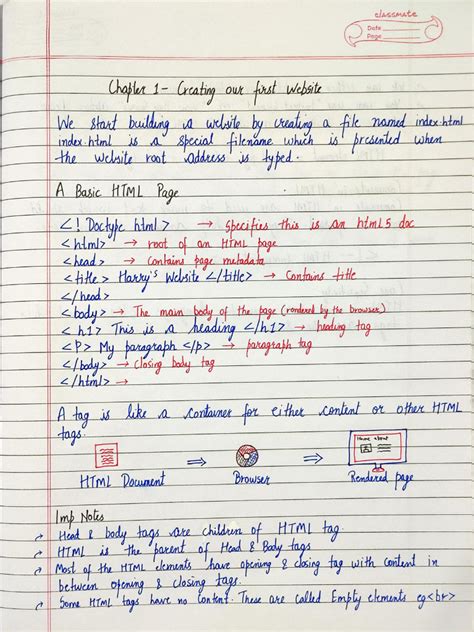 classmate
Date
Page
Chapter 1 - Creating our first Website
We start building a website by creating a file named index.html
index.html is a special filename which is presented when
the website root address is typed.
A Basic HTML Page
<! Doctype html> → specifies this is an html5 doc
<html> → root of an HTML page
<head> → Contains page metadata
<title> Harry's Website </title> → Contains title
</head>
<body> → The main body of the page (rendered by the browser)
<h1> This is a heading </h1> → heading tag
<P> My paragraph </p> → paragraph tag
</body> → Closing body tag
</html> →
A tag is like a container for either content or other HTML
tags.
Home about
HTML Document ⇒ Browser ⇒ Rendered page
Imp Notes
→ Head & body tags are children of HTML tag.
→ HTML is the parent of Head & Body tags
→ Most of the HTML elements have opening & closing tag with content in
between opening & closing tags.
→ Some HTML tags have no content. These are called Empty elements eg <br>